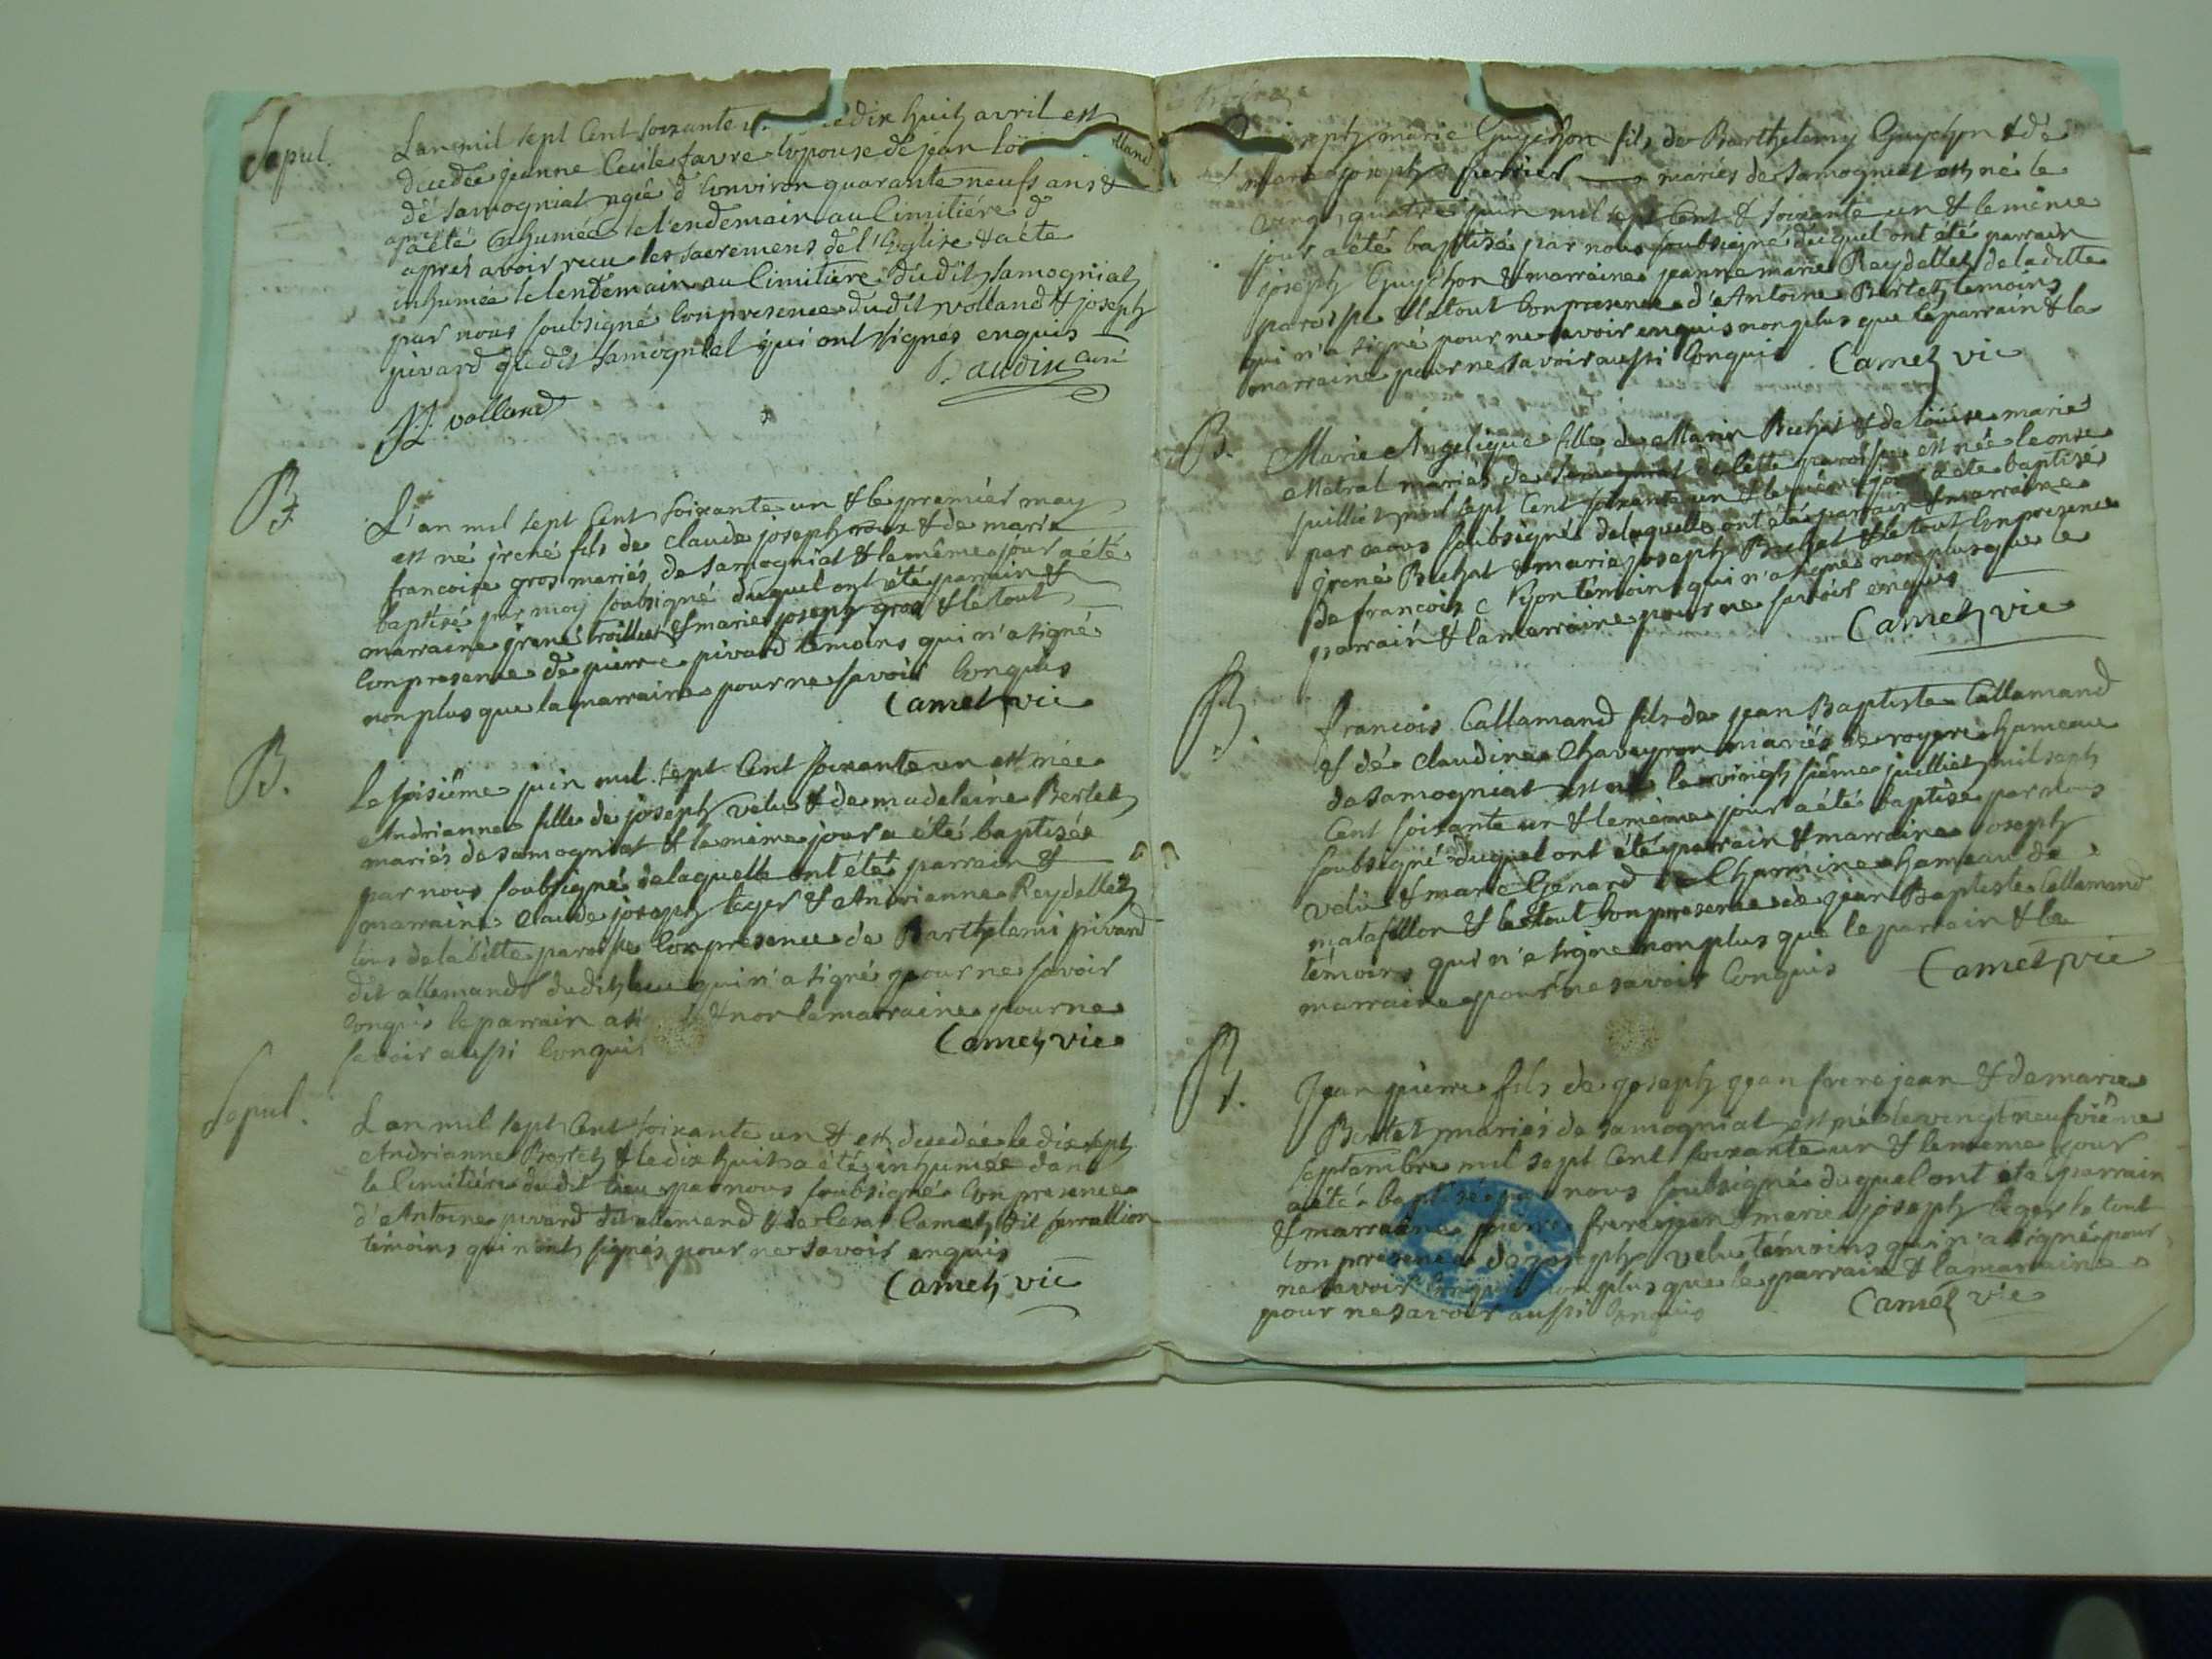 Sepul.
L'an mil sept Cent soixante dix huit avril est
decedée jeanne Cecile favre Epouse de jean
volland
de samogniat agée d'Environ quarante neufs ans &
apres
a été Enhumée le lendemain au Cimitiére d
aprés avoir recu les sacremens de l'Eglise & a été
inhumée le lendemain au Cimitiére dudit samogniat
par nous soubsigné En presence dudit volland & joseph
pivard dudit samogniat qui ont signés enquis
P. audin curé
J.J. volland
B.
L'an mil sept Cent soixante un & le premier may
est né jrené fils de claude joseph roux & de marie
francoise gros mariés de samogniat & le même jour a été
baptisé par moy soubsigné duquel ont été parrain &
marraine jrené troillet & marie joseph gros & le tout
En presence de pierre pivard temoins qui n'a signé
non plus que la marraine pour ne savoir Enquis
Camet vic
B.
Le sisiême juin mil sept Cent soixante un est née
Andrianne fille de joseph velu & de madeleine Bertet
mariés de samogniat & le même jour a été baptisée
par nous soubsigné de laquelle ont été parrain &
marraine Claude joseph leger & Andrianne Reydellet
tous de laditte paroisse En presence de Barthelemi pivard
dit allemand dudit lieu qui n'a signé pour ne savoir
Enquis le parrain a & non la marraine pour ne
savoir aussi Enquis
Camet vic
Sepul.
L'an mil sept Cent soixante un & est decedée le dix sept
Andrianne Bertet & le dix huit a été inhumée dans
le Cimitiére dudit lieu par nous soubsigné En presence
d'Antoine pivard dit allemand & de Camet dit
témoins qui n'ont signés pour ne savoir enquis
Camet vic
joseph marie Guychon fils de Barthelemy Guychon & de
marie joseph perrier mariés de samogniat est né le
vingt quatre juin mil sept Cent & soixante un & le même
jour a été baptisé par nous soubsigné duquel ont été parrain
joseph Guychon & marraine jeanne marie Reydellet de laditte
paroisse & le tout En presence d'Antoine Bertet temoins
qui n'a signé pour ne savoir enquis non plus que le parrain & la
marraine pour ne savoir aussi Enquis
Camet vic
B.
Marie Angelique fille de Marin Buchet & de loüise marie
Metral mariés de samogniat de Cette paroisse est née le onze
juilliet mil sept Cent soixante un & le même jour a été baptisée
par nous soubsigné de laquelle ont été parrain & marraine
jrené Buchet & marie joseph Buchet & le tout En presence
de francois témoin qui n'a signé non plus que le
parrain & la marraine pour ne savoir enquis
Camet vic
B.
francois Callamand fils de jean Baptiste Callamand
& de claudine Chaveyron mariés de royere hameau
de samogniat est né le vingt siême juilliet mil sept
Cent soixante un & le même jour a été baptisé par nous
soubsigné duquel ont été parrain & marraine joseph
velu & marie Genard de Charmine hameau de
matafellon & le tout En presence de jean Baptiste Callamand
témoins qui n'a signé non plus que le parrain & la
marraine pour ne savoir Enquis
Camet vic
B.
Jean pierre fils de joseph jean frere jean & de marie
Bertet mariés de samogniat est né le vingt neufviême
septembre mil sept Cent soixante un & le même jour
a été baptisé par nous soubsigné duquel ont été parrain
& marraine pierre frere jean marie joseph leger le tout
En presence de joseph velu témoins qui n'a signé pour
ne savoir Enquis non plus que le parrain & la marraine
pour ne savoir aussi Enquis
Camet vic